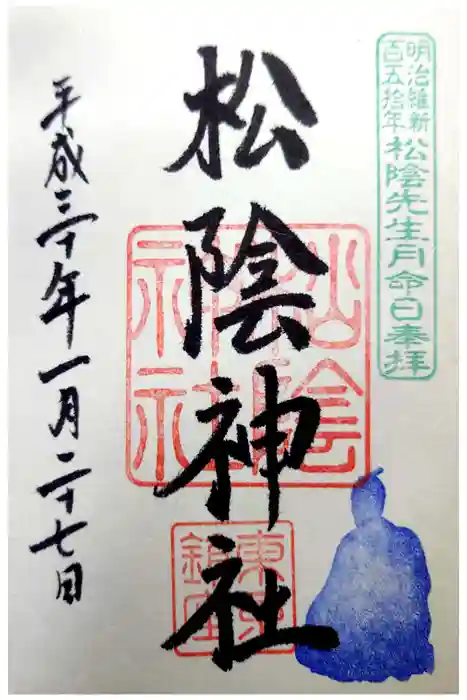 明治維新
百五拾年
松陰先生月命日奉拝
松陰神社
松陰神社
東京
鎮座
平成三十年一月二十七日